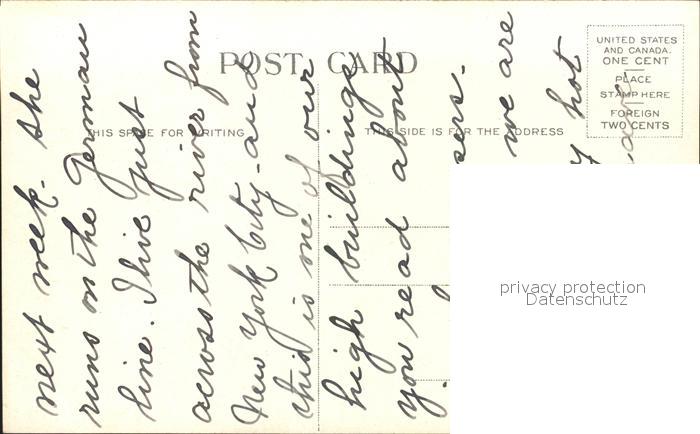 POST CARD
THIS SPACE FOR WRITING
THIS SIDE IS FOR THE ADDRESS
UNITED STATES
AND CANADA.
ONE CENT
PLACE
STAMP HERE
FOREIGN
TWO CENTS
next week. She
runs on the German
line. I live just
across the river from
New York City and
this is one of our
high buildings
you read about
sers.
we are
hot
privacy protection
Datenschutz